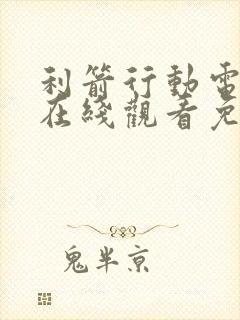 利箭行動電
在綫觀看免
鬼半京